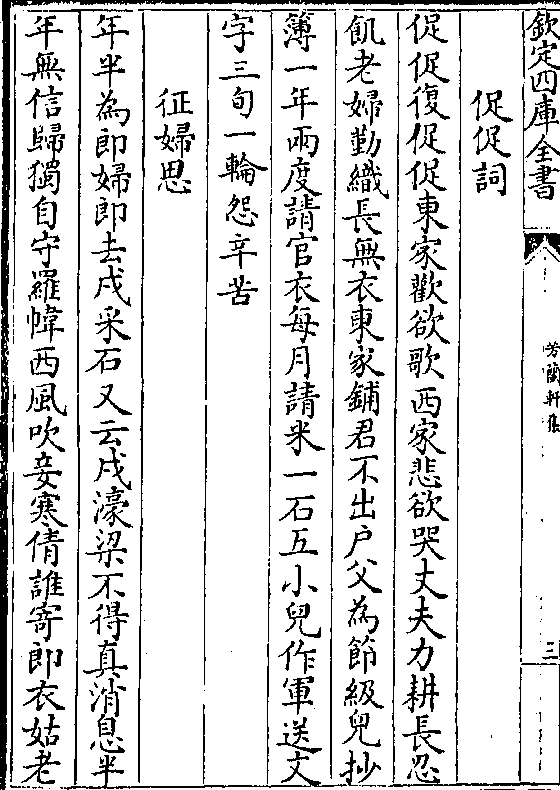 欽定四庫全書
芳蘭軒集
三
促促詞
促促復促促東家歡欲歌西家悲欲哭丈夫力耕長忍
飢老婦勤織長無衣東家鋪君不出户父為節級兒抄
簿一年兩度請官衣每月請米一石五小兒作軍送文
字三旬一輪怨辛苦
征婦思
年半為郎婦郎去戍采石又云戍濠梁不得真消息半
年無信歸獨自守羅幃西風吹妾寒倩誰寄郎衣姑老